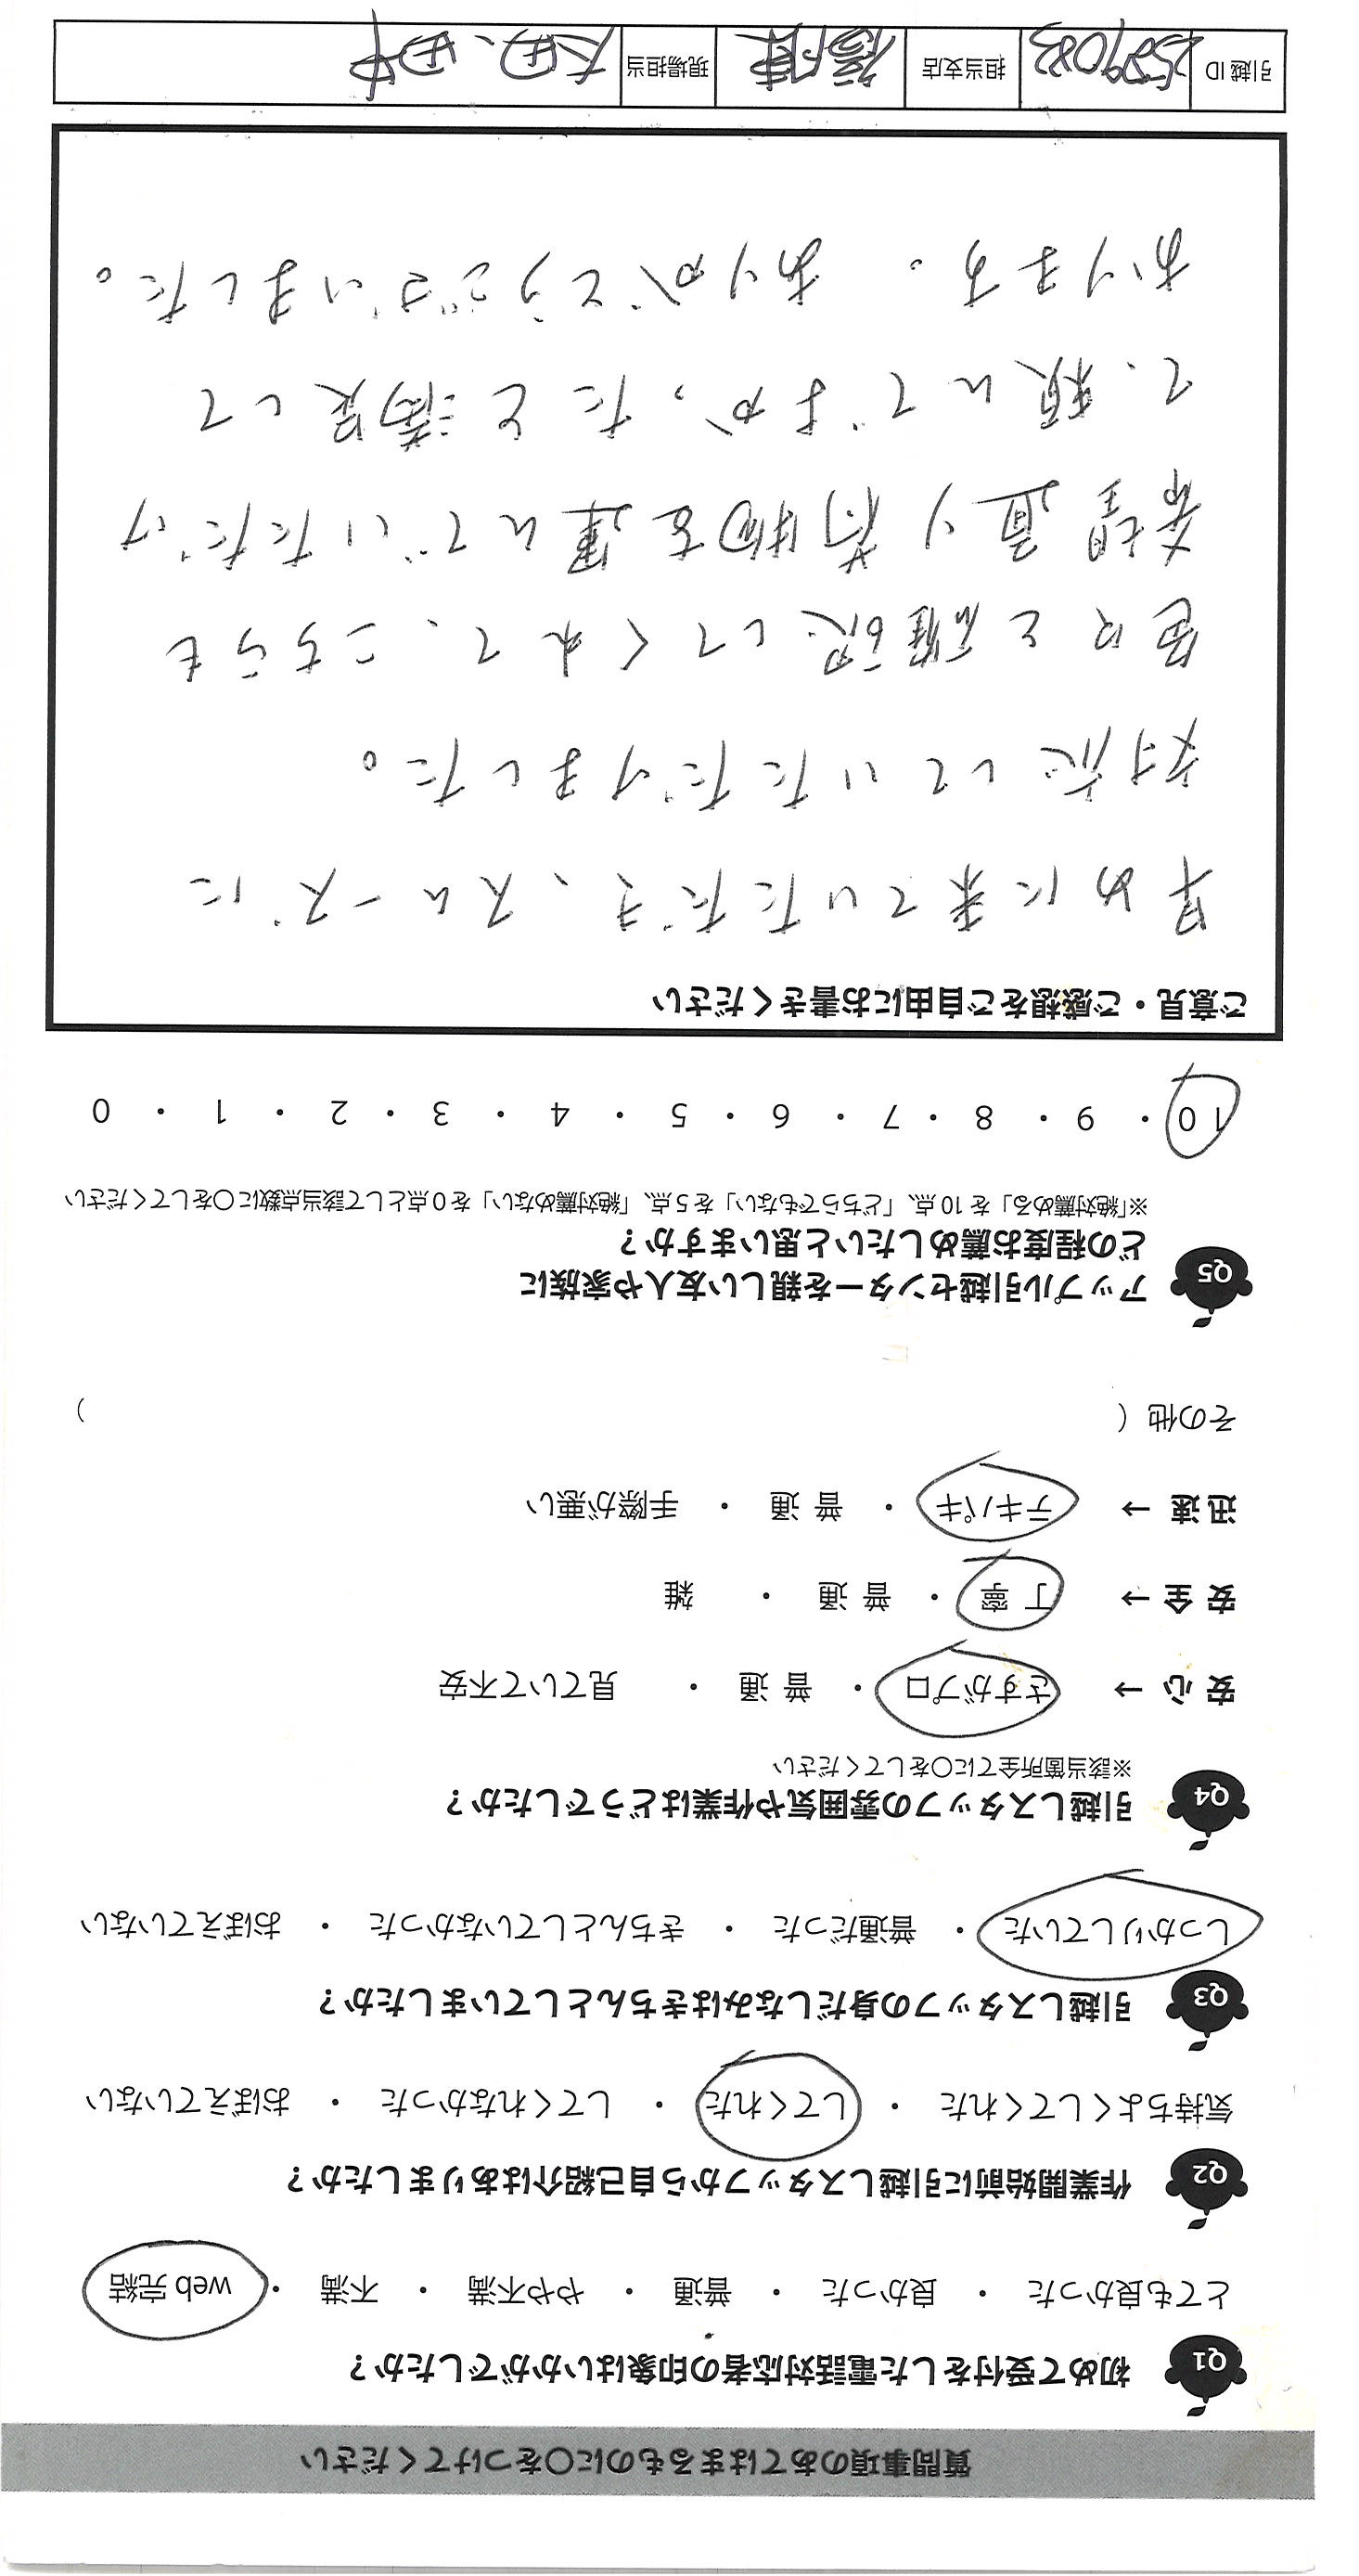 質問事項のあてはまるものに○をつけてください
Q1 初めて受付をした電話対応者の印象はいかがでしたか？
とても良かった ・ 良かった ・ 普通 ・ やや不満 ・ 不満 ・ web 完結
Q2 作業開始前に引越しスタッフから自己紹介はありましたか？
気持ちよくしてくれた ・ してくれた ・ してくれなかった ・ おぼえていない
Q3 引越しスタッフの身だしなみはきちんとしていましたか？
しっかりしていた ・ 普通だった ・ きちんとしていなかった ・ おぼえていない
Q4 引越しスタッフの雰囲気や作業はどうでしたか？
※該当箇所全てに○をしてください
安 心 → さすがプロ ・ 普 通 ・ 見ていて不安
安 全 → 丁 寧 ・ 普 通 ・ 雑
迅 速 → テキパキ ・ 普 通 ・ 手際が悪い
その他（ ）
Q5 アップル引越センターを親しい友人や家族に
どの程度お薦めしたいと思いますか？
※「絶対薦める」を 10 点、「どちらでもない」を 5 点、「絶対薦めない」を 0 点として該当点数に○をしてください
10 ・ 9 ・ 8 ・ 7 ・ 6 ・ 5 ・ 4 ・ 3 ・ 2 ・ 1 ・ 0
ご意見・ご感想をご自由にお書きください
早めに来ていただき、スムーズに
対応していただけました。
色々と確認してくれて、こちらも
希望通り荷物を運んでいただけ
て、頼んでよかったと満足して
おります。ありがとうございました。
引越 ID 2589083 担当支店 現場担当 太田、田中